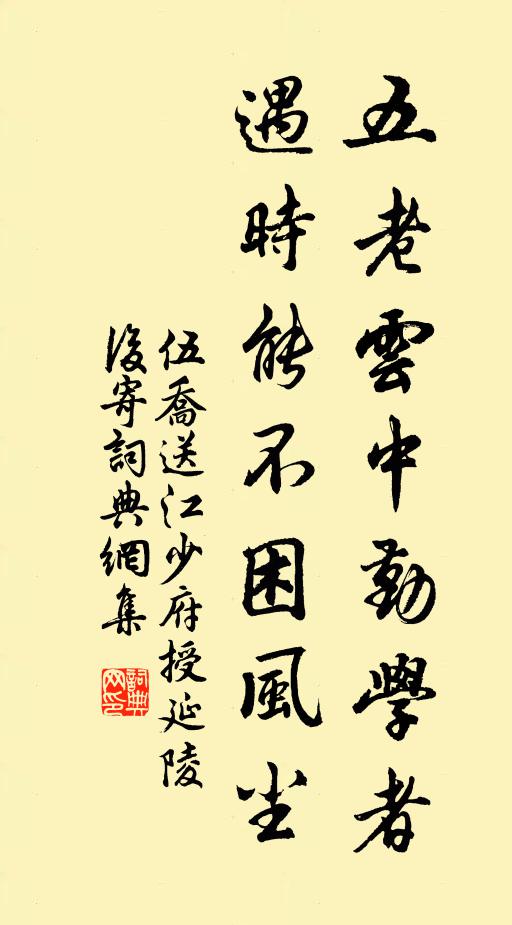 五老雲中勤學者
遇時能不困風尘
伍喬送江少府授延陵
後寄詞典網集
詞典
网印